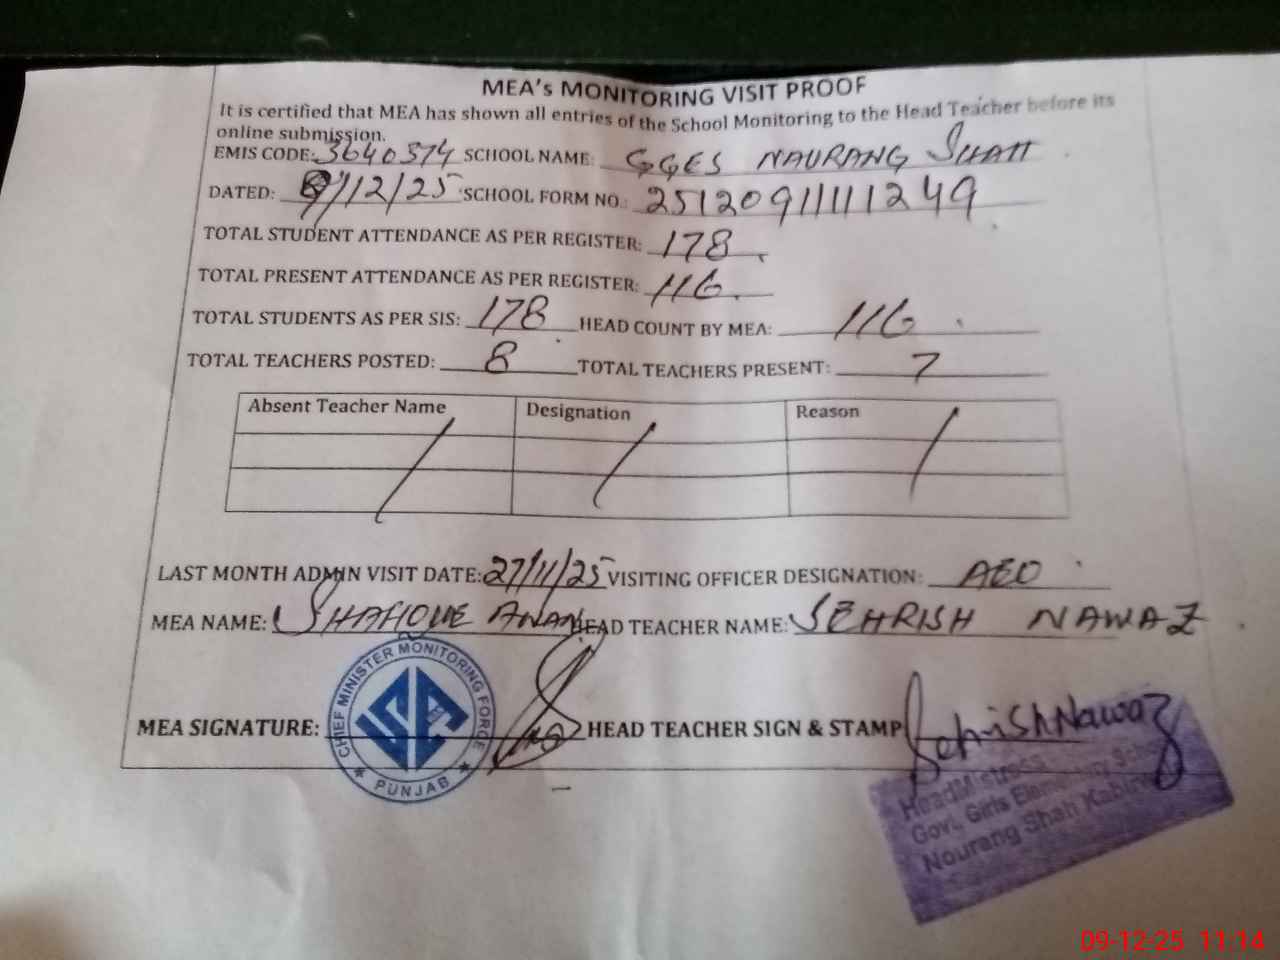 MEA's MONITORING VISIT PROOF
It is certified that MEA has shown all entries of the School Monitoring to the Head Teacher before its
online submission.
EMIS CODE: 3640374 SCHOOL NAME: GGES NAURANG SHAH
DATED: 9/12/25 SCHOOL FORM NO.: 25120911111249
TOTAL STUDENT ATTENDANCE AS PER REGISTER: 178
TOTAL PRESENT ATTENDANCE AS PER REGISTER: 116
TOTAL STUDENTS AS PER SIS: 178 HEAD COUNT BY MEA: 116
TOTAL TEACHERS POSTED: 8 TOTAL TEACHERS PRESENT: 7
Absent Teacher Name Designation Reason
LAST MONTH ADMIN VISIT DATE: 27/11/25 VISITING OFFICER DESIGNATION: AEO
MEA NAME: HEAD TEACHER NAME: SEHRISH NAWAZ
MEA SIGNATURE: HEAD TEACHER SIGN & STAMP Sehrish Nawaz
CHIEF MINISTER MONITORING FORCE
PUNJAB
HeadMistress
Govt. Girls Elementary School
Nourang Shah
09-12-25 11:14